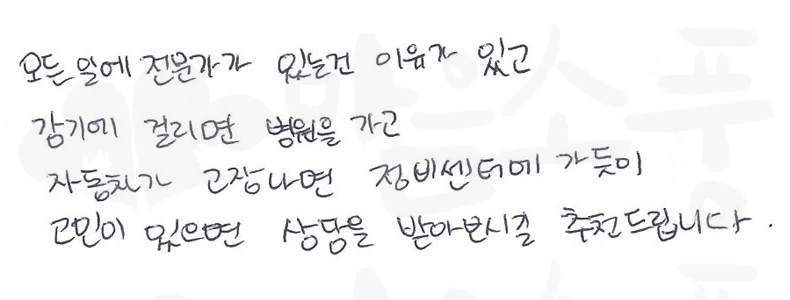 모든 일에 전문가가 있는건 이유가 있고
감기에 걸리면 병원을 가고
자동차가 고장나면 정비센터에 가듯이
고민이 있으면 상담을 받아보시길 추천드립니다.